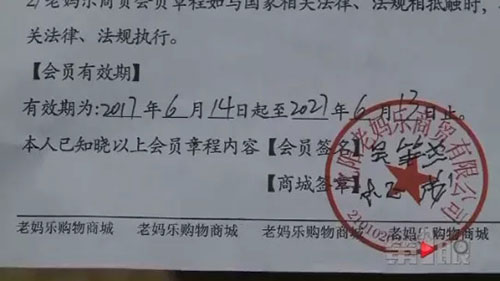 2/老妈乐商贸会员章程如与国家相关法律、法规相抵触时，
关法律、法规执行。
【会员有效期】
有效期为:2017年6月14日起至2027年6月13日止。
本人已知晓以上会员章程内容【会员签名】
【商城签章】
老妈乐商贸有限公司
老妈乐购物商城 老妈乐购物商城 老妈乐购物商城 老妈乐购物商城